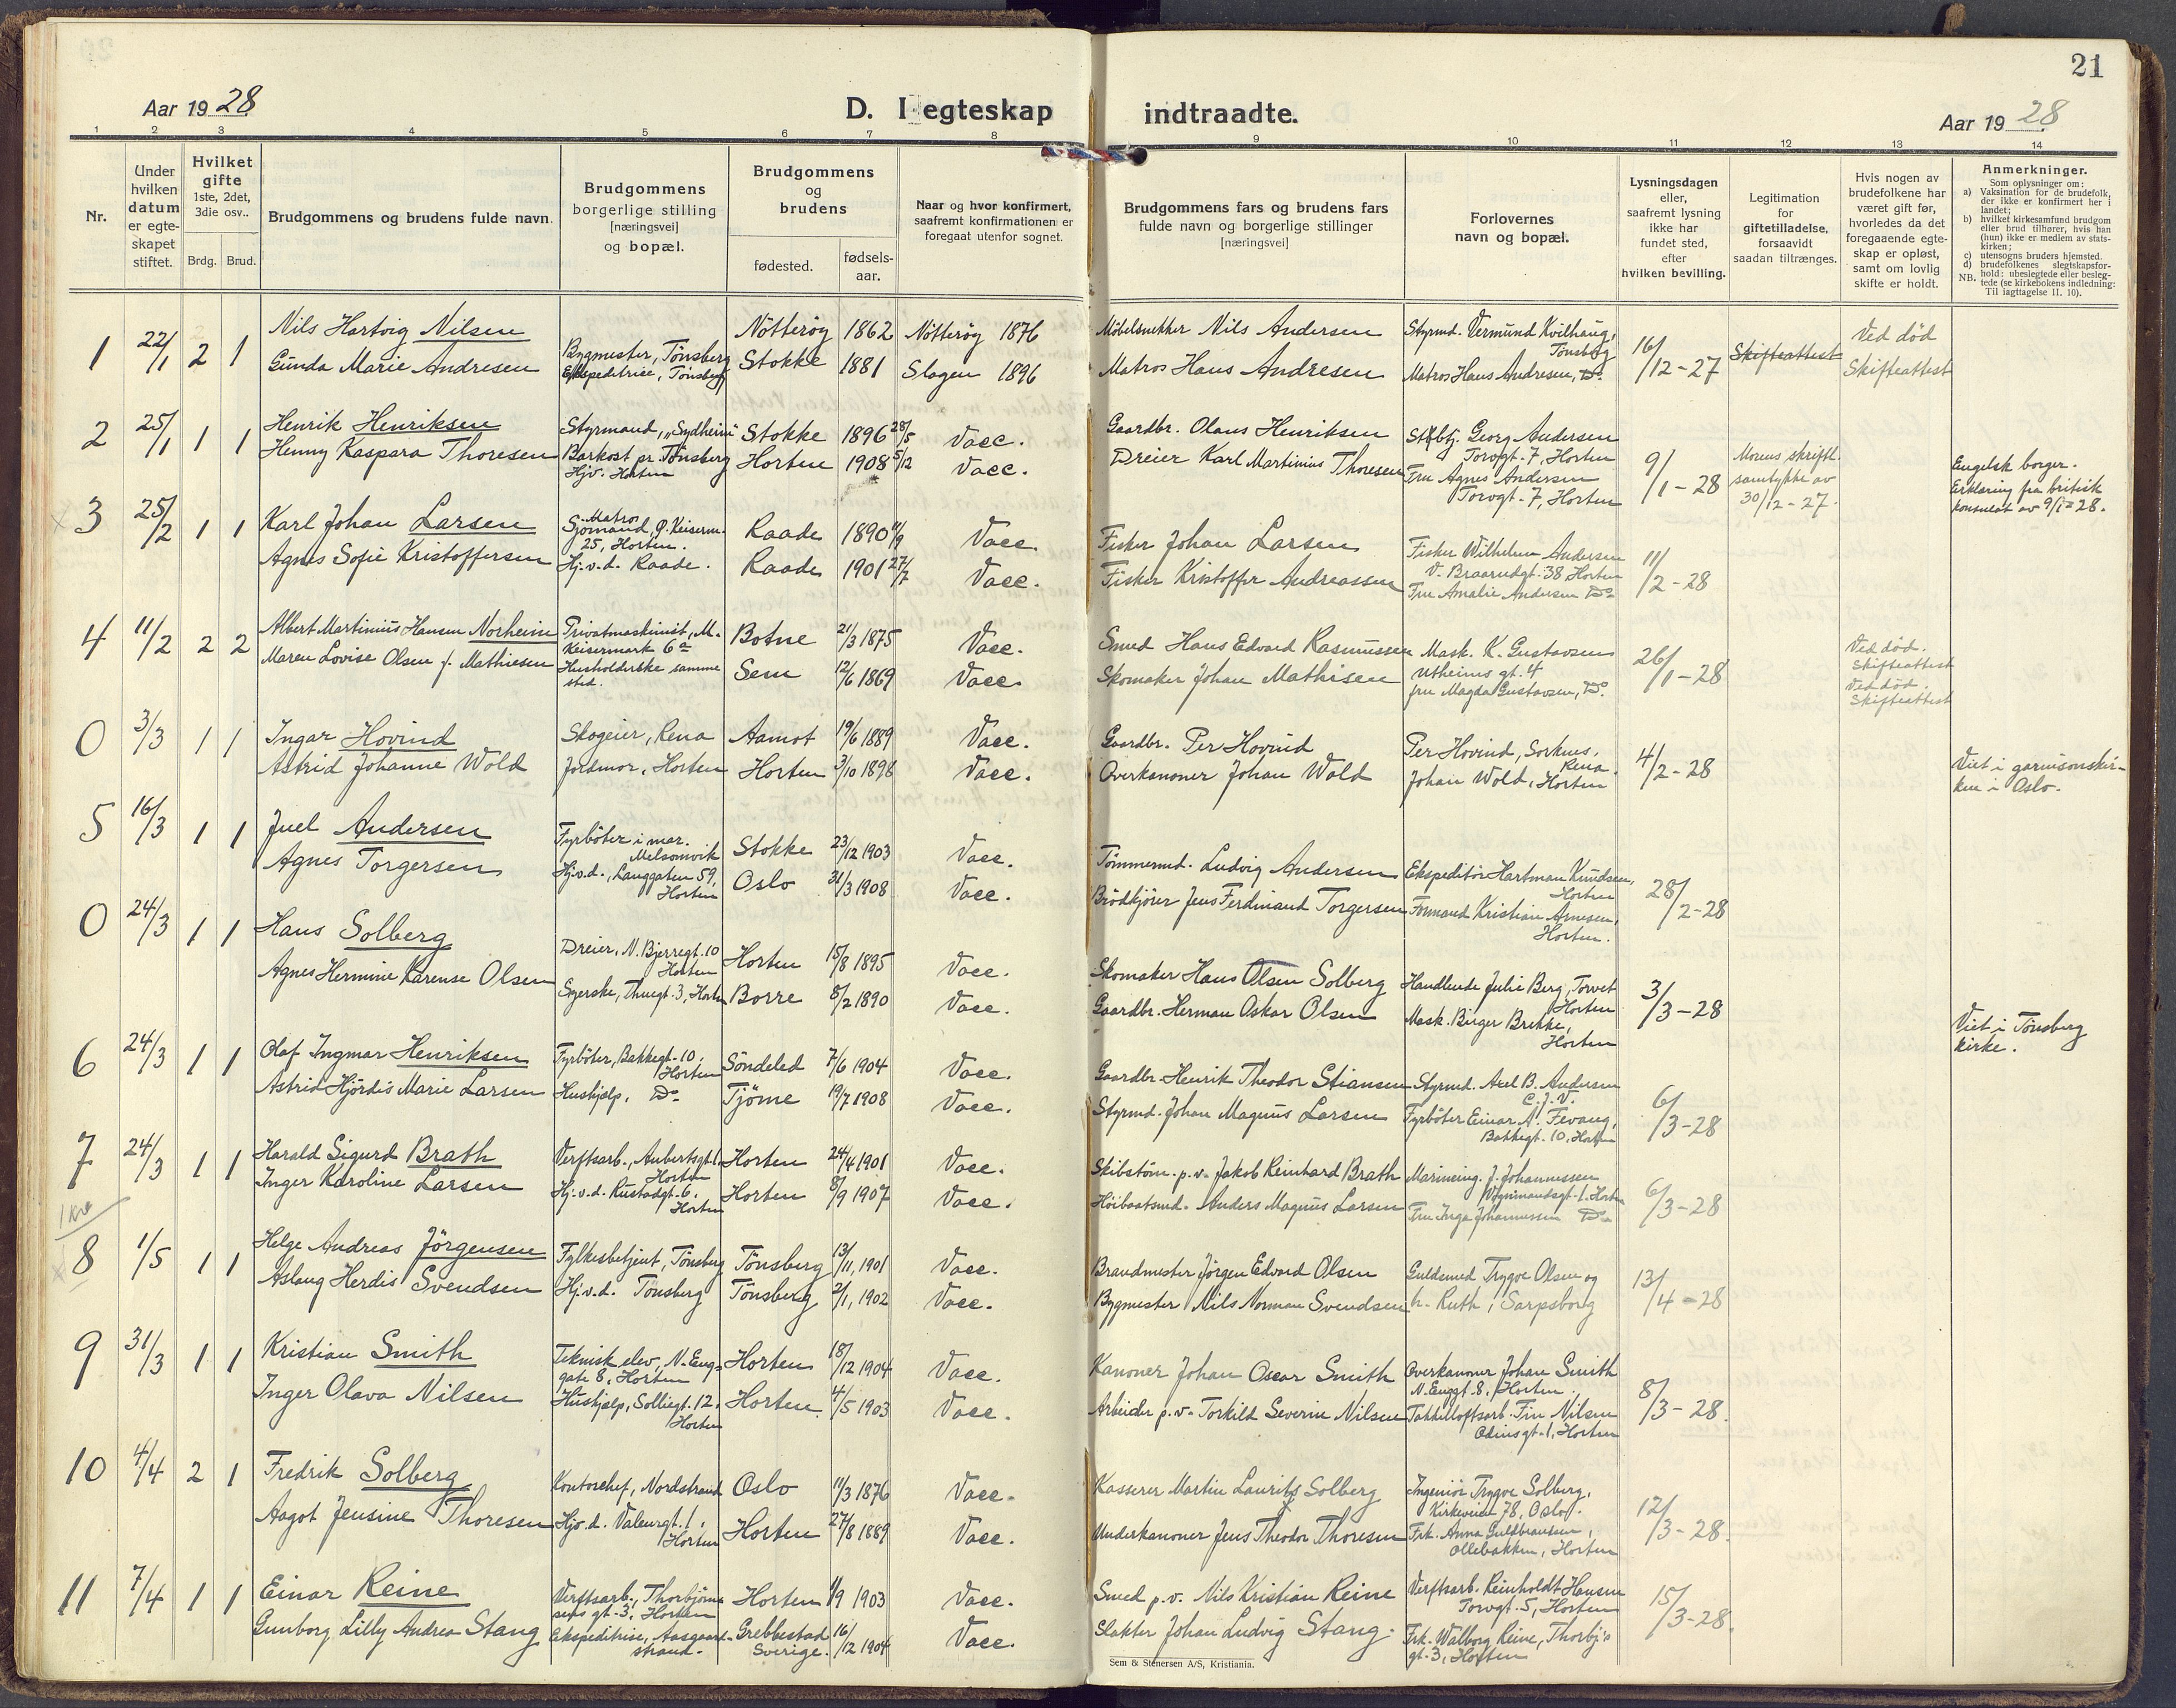 21
Aar 1928.
D. I egteskap indtraadte.
Aar 1928.
1 2 3 4 5 6 7 8 9 10 11 12 13 14
Nr.
Under hvilken datum er egte-skapet stiftet.
Hvilket gifte
1ste, 2det, 3die osv..
Brdg. Brud.
Brudgommens og brudens fulde navn.
Brudgommens borgerlige stilling [næringsvei] og bopæl.
Brudgommens og brudens
fødested.
fødsels-aar.
Naar og hvor konfirmert, saafremt konfirmationen er foregaat utenfor sognet.
Brudgommens fars og brudens fars fulde navn og borgerlige stillinger [næringsvei]
Forlovernes navn og bopæl.
Lysningsdagen eller, saafremt lysning ikke har fundet sted, efter hvilken bevilling.
Legitimation for giftetilladelse, forsaavidt saadan tiltrænges.
Hvis nogen av brudefolkene har været gift før, hvorledes da det foregaaende egte-skap er opløst, samt om lovlig skifte er holdt.
Anmerkninger.
Som oplysninger om:
a) Vaksination for de brudefolk, der ikke er konfirmert her i landet;
b) hvilket kirkesamfund brudgom eller brud tilhører, hvis han (hun) ikke er medlem av stats-kirken;
c) utensogns bruders hjemsted.
d) brudefolkenes slegtskapsfor-hold: ubeslegtede eller besleg-tede (se kirkebokens indledning:
NB. Til iagttagelse II. 10).
1 22/1 2 1 Nils Hartvig Nilsen Bygmester, Tönsberg Nötteröy 1862 Nötteröy 1876 Möbelsnekker Nils Andersen Styrmd. Vermund Kvilhaug, Tönsbg 16/12-27 Skifteattest Ved död
Gunda Marie Andresen Ekspeditrice, Tönsberg Stokke 1881 Slagen 1896 Matros Hans Andresen Matros Hans Andresen, Do. Skifteattest
2 25/1 1 1 Henrik Henriksen Styrmand, "Sydheim" Barkost pr. Tönsberg Stokke 1896 28/5 Vacc. Gaardbr. Olaus Henriksen Georg Andersen Torvgt. 7, Horten 9/1-28 Morens skriftl. samtykke av 30/12-27. Engelsk borger. Erklæring fra britisk konsulat av 9/1-28.
Henny Kaspara Thoresen Hjv. Horten Horten 1908 5/12 Vacc. Dreier Karl Martinius Thoresen Fru Agnes Andersen Torvgt. 7, Horten
3 25/2 1 1 Karl Johan Larsen Matros Sjömand, Keiserm. 25, Horten. Raade 1890 11/9 Vacc. Fisker Johan Larsen Fisker Wilhelm Andersen V. Braarudgt. 38 Horten 11/2-28
Agnes Sofie Kristoffersen Hj.v.d. Raade. Raade 1901 27/7 Vacc. Fisker Kristoffer Andreassen Fru Amalie Andersen Do
4 11/2 2 2 Albert Martinius Hansen Norheim Privatmaskinist, M. Keisermark 6a Botne 21/3 1875 Vacc. Smed Hans Edvard Rasmussen Mask. K. Gustavsen Utheims gt. 4 26/1-28 Ved död. Skifteattest
Maren Lovise Olsen f. Mathiesen Husholderske samme sted. Sem 12/6 1869 Vacc. Skomaker Johan Mathisen fru Magda Gustavsen, Do. Ved död. Skifteattest
0 3/3 1 1 Ingar Hovind Skogeier, Rena Aamot 19/6 1889 Vacc. Gaardbr. Per Hovind Per Hovind, Sorknes, Rena. 4/2-28 Viet i garnisonskir-ken i Oslo.
Astrid Johanne Wold Jordmor, Horten Horten 3/10 1898 Vacc. Overkanoner Johan Wold Johan Wold, Horten
5 16/3 1 1 Juel Andersen Fyrböter i mar. Melsomvik Stokke 23/12 1903 Vacc. Tömmermd. Ludvig Andersen Ekspeditör Hartman Knudsen, Horten 28/2-28
Agnes Torgersen Hj.v.d., Langgaten 59, Horten Oslo 31/3 1908 Vacc. Brödkjörer Jens Ferdinand Torgersen Formand Kristian Arnesen, Horten.
0 24/3 1 1 Hans Solberg Dreier, N. Bjerregt. 10 Horten Horten 15/8 1895 Vacc. Skomaker Hans Olsen Solberg Handlende Julie Berg, Torvet Horten 3/3-28 Viet i Tönsberg kirke.
Agnes Hermine Karense Olsen Syerske, Thuegt. 3, Horten Borre 8/2 1890 Vacc. Gaardbr. Herman Oskar Olsen Mask. Birger Brekke, Horten
6 24/3 1 1 Olaf Ingmar Henriksen Fyrböter, Bakkegt. 10, Horten Söndeled 7/6 1904 Vacc. Gaardbr. Henrik Theodor Stiansen Styrmd. Axel B. Andersen C.J.V. 6/3-28
Astrid Hjördis Marie Larsen Hushjelp, Do. Tjöme 19/7 1908 Vacc. Styrmd. Johan Magnus Larsen Fyrböter Einar A. Fevang, Bakkegt. 10, Horten
7 24/3 1 1 Harald Sigurd Brath Verftsarb., Aubertsgt. 1 Horten Horten 24/4 1901 Vacc. Skibstöm. p.v. Jakob Reinhard Brath Marineing. J. Johannessen Wegnimandsgt. 1. Horten 6/3-28
Inger Karoline Larsen Hj.v.d. Rustadgt. 6, Horten Horten 8/9 1907 Vacc. Höibaatsmd. Anders Magnus Larsen Fru Inga Johannessen Do
8 1/5 1 1 Helge Andreas Jörgensen Fylkesbetjent, Tönsberg Tönsberg 13/11, 1901 Vacc. Brandmester Jörgen Edvard Olsen Guldsmed Trygve Olsen og 13/4-28
Aslaug Herdis Svendsen Hj.v.d. Tönsberg Tönsberg 2/1, 1902 Vacc. Bygmester Nils Norman Svendsen h. Ruth, Sarpsborg
9 31/3 1 1 Kristian Smith Teknisk elev, N. Eng-gate 8, Horten Horten 18/12 1904 Vacc. Kanoner Johan Oscar Smith Overkanoner Johan Smith N. Enggt. 8, Horten. 8/3-28.
Inger Olava Nilsen Hushjelp, Solliegt. 12, Horten Horten. 4/5 1903 Vacc. Arbeider p.v. Torkild Severin Nilsen Takkelloftsarb. Fin Nilsen Odins gt. 1, Horten
10 4/4 2 1 Fredrik Solberg Kontorchef, Nordstrand Oslo 11/3 1876 Vacc. Kasserer Martin Lauritz Solberg Ingeniör Trygve Solberg, Kirkeveien 78, Oslo. 12/3-28.
Aagot Jensine Thoresen Hjv.d. Valeurgt. 1, Horten Horten 27/8 1889 Vacc. Underkanoner Jens Theodor Thoresen Frk. Anna Gulbransen, Ollebakken, Horten
11 7/4 1 1 Einar Reine Verftsarb., Thorbjörn-sens gt. 3, Horten Horten 1/9 1903 Vacc. Smed p.v. Nils Kristian Reine Verftsarb. Reinholdt Hansen Torvgt. 5, Horten 15/3-28.
Gunborg Lilly Andrea Stang Ekspeditrise, Aasgaard-strand. Grebbestad Sverige. 16/12 1904 Vacc. Slakter Johan Ludvig Stang. Frk. Walborg Reine, Thorbj's gt. 3, Horten
Sem & Stenersen A/S, Kristiania.